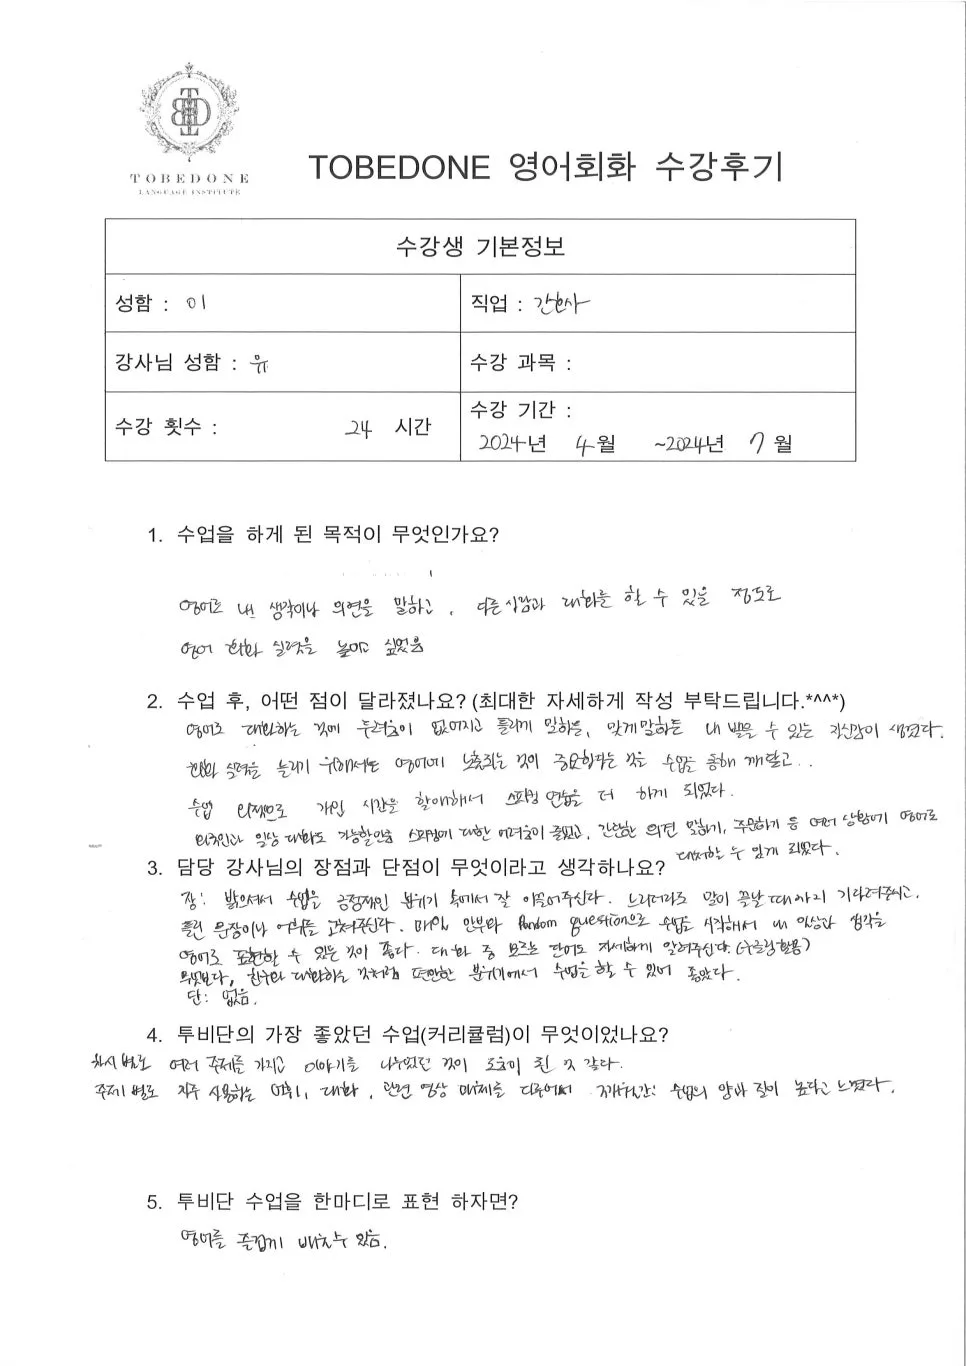 TBD
TOBEDONE
LANGUAGE INSTITUTE
TOBEDONE 영어회화 수강후기
수강생 기본정보
성함 : 이
직업 : 간호사
강사님 성함 : 유
수강 과목 :
수강 횟수 : 24 시간
수강 기간 :
2024년 4월 ~2024년 7월
1. 수업을 하게 된 목적이 무엇인가요?
영어로 내 생각이나 의견을 말하고, 다른 사람과 대화를 할 수 있을 정도로
영어 회화 실력을 높이고 싶었음
2. 수업 후, 어떤 점이 달라졌나요? (최대한 자세하게 작성 부탁드립니다.*^^*)
영어로 대화하는 것에 두려움이 없어지고 틀리게 말하든, 맞게말하든 내 뱉을 수 있는 자신감이 생겼다.
회화 실력을 늘리기 위해서는 영어에 노출되는 것이 중요하다는 것을 수업을 통해 깨닫고..
수업 외적으로 개인 시간을 할애해서 스피킹 연습을 더 하게 되었다.
외국인과 일상 대화도 가능할만큼 스피킹에 대한 어려움이 줄었고, 간단한 의견 말하기, 주문하기 등 여러 상황에 영어로
대처할 수 있게 되었다.
3. 담당 강사님의 장점과 단점이 무엇이라고 생각하나요?
장: 밝으셔서 수업을 긍정적인 분위기 속에서 잘 이끌어주신다. 느리더라도 말이 끝날 때까지 기다려주시고,
틀린 문장이나 어휘를 고쳐주신다. 매일 안부와 Random question으로 수업을 시작해서 내 일상과 생각을
영어로 표현할 수 있는 것이 좋다. 대화 중 모르는 단어도 자세하게 알려주신다.(구글링 활용)
무엇보다, 친구와 대화하는 것처럼 편안한 분위기에서 수업을 할 수 있어 좋았다.
단: 없음.
4. 투비단의 가장 좋았던 수업(커리큘럼)이 무엇이었나요?
차시 별로 여러 주제를 가지고 이야기를 나누었던 것이 도움이 된 것 같다.
주제 별로 자주 사용하는 어휘, 대화, 관련 영상 매체를 다루어서 수업의 양과 질이 높다고 느꼈다.
5. 투비단 수업을 한마디로 표현 하자면?
영어를 즐겁게 배울수 있음.